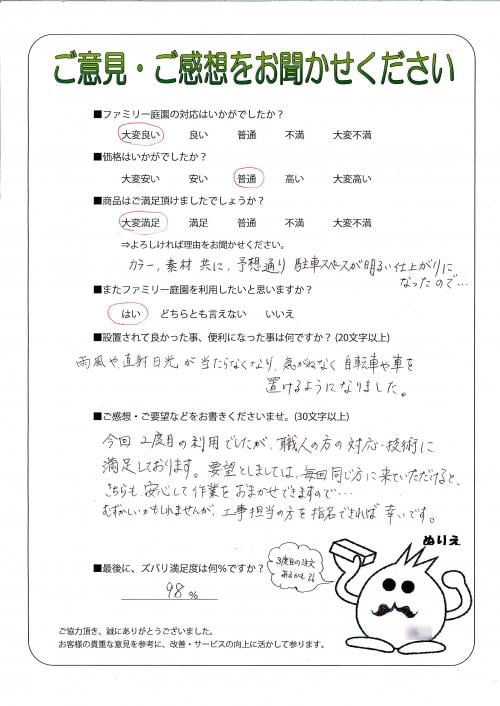 ご意見・ご感想をお聞かせください
■ファミリー庭園の対応はいかがでしたか？
大変良い 良い 普通 不満 大変不満
■価格はいかがでしたか？
大変安い 安い 普通 高い 大変高い
■商品はご満足頂けましたでしょうか？
大変満足 満足 普通 不満 大変不満
⇒よろしければ理由をお聞かせください。
カラー，素材 共に，予想通り 駐車スペースが明るい仕上がりに
なったので…
■またファミリー庭園を利用したいと思いますか？
はい どちらとも言えない いいえ
■設置されて良かった事、便利になった事は何ですか？(20文字以上)
雨風や，直射日光が当たらなくなり，気がねなく自転車や車を
置けるようになりました。
■ご感想・ご要望などをお書きくださいませ。(30文字以上)
今回 2度目の利用でしたが，職人の方の対応・技術に
満足しております。要望としましては，毎回同じ方に来ていただけると，
こちらも安心して作業をおまかせできますので…
むずかしいかもしれませんが，工事担当の方を指名できれば幸いです。
ぬりえ
3度目の注文
あるかも
■最後に、ズバリ満足度は何％ですか？
98 ％
ご協力頂き、誠にありがとうございました。
お客様の貴重な意見を参考に、改善・サービスの向上に活かして参ります。